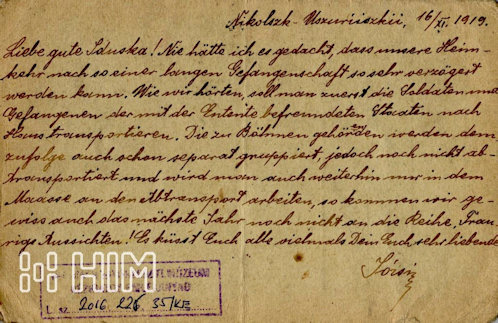 Nikolsk-Uszurijszkii, 16/XI. 1919.
Liebe gute Iduska! Nie hätte ich es gedacht, dass unsere Heim-
kehr nach so einer langen Gefangenschaft so sehr verzögert
werden kann. Wie wir hörten, soll man zuerst die Soldaten und
Gefangenen der mit der Entente befreundeten Staaten nach
Haus transportieren. Die zu Böhmen gehörten werden dem-
zufolge auch schon separat gruppiert, jedoch noch nicht ab-
transportiert und wird man auch weiterhin nur in dem
Maasse an den Abtransport arbeiten, so kommen wir ge-
wiss auch das nächste Jahr noch nicht an die Reihe. Trau-
rige Aussichten! Es küsst Euch alle vielmals Dein Euch sehr liebende
HIM
L. sz. 2016. 226. 35/KE